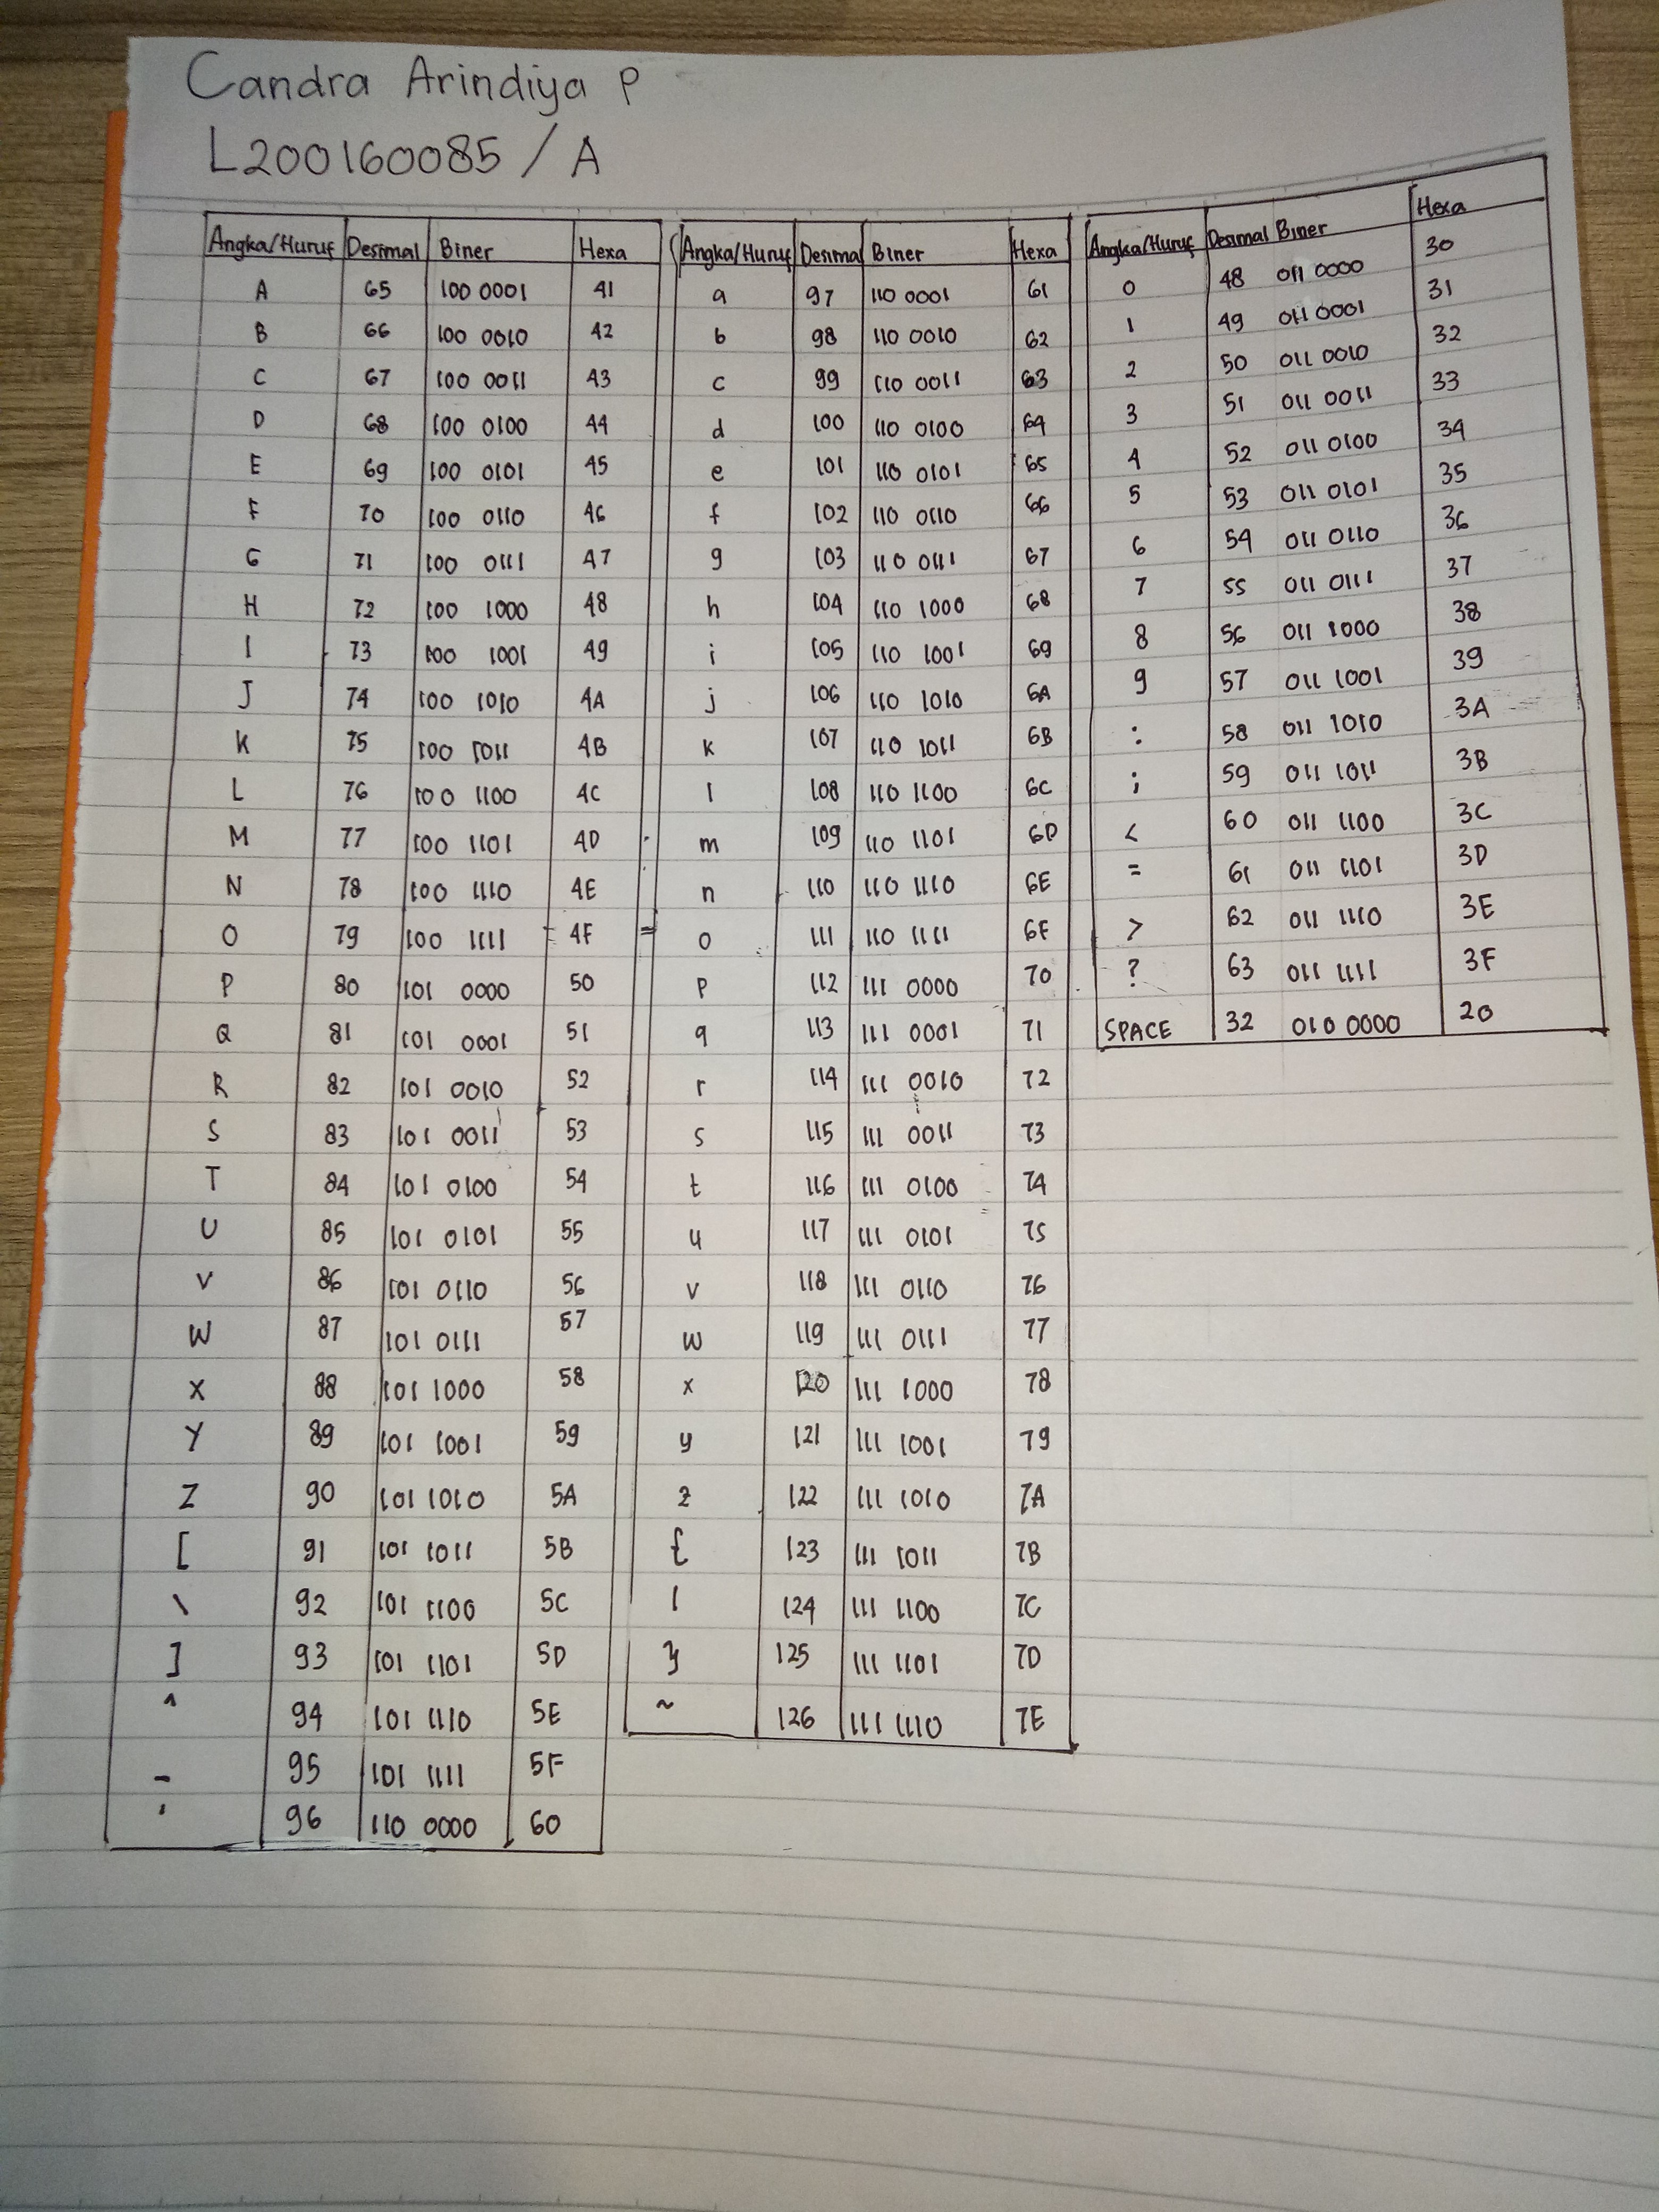 Candra Arindiya P
L200160085 / A
Angka/Huruf Desimal Biner Hexa
A 65 100 0001 41
B 66 100 0010 42
C 67 100 0011 43
D 68 100 0100 44
E 69 100 0101 45
F 70 100 0110 46
G 71 100 0111 47
H 72 100 1000 48
I 73 100 1001 49
J 74 100 1010 4A
K 75 100 1011 4B
L 76 100 1100 4C
M 77 100 1101 4D
N 78 100 1110 4E
O 79 100 1111 4F
P 80 101 0000 50
Q 81 101 0001 51
R 82 101 0010 52
S 83 101 0011 53
T 84 101 0100 54
U 85 101 0101 55
V 86 101 0110 56
W 87 101 0111 57
X 88 101 1000 58
Y 89 101 1001 59
Z 90 101 1010 5A
[ 91 101 1011 5B
\ 92 101 1100 5C
] 93 101 1101 5D
^ 94 101 1110 5E
_ 95 101 1111 5F
' 96 110 0000 60
Angka/Huruf Desimal Biner Hexa
a 97 110 0001 61
b 98 110 0010 62
c 99 110 0011 63
d 100 110 0100 64
e 101 110 0101 65
f 102 110 0110 66
g 103 110 0111 67
h 104 110 1000 68
i 105 110 1001 69
j 106 110 1010 6A
k 107 110 1011 6B
l 108 110 1100 6C
m 109 110 1101 6D
n 110 110 1110 6E
o 111 110 1111 6F
p 112 111 0000 70
q 113 111 0001 71
r 114 111 0010 72
s 115 111 0011 73
t 116 111 0100 74
u 117 111 0101 75
v 118 111 0110 76
w 119 111 0111 77
x 120 111 1000 78
y 121 111 1001 79
z 122 111 1010 7A
{ 123 111 1011 7B
| 124 111 1100 7C
} 125 111 1101 7D
~ 126 111 1110 7E
Angka/Huruf Desimal Biner Hexa
0 48 011 0000 30
1 49 011 0001 31
2 50 011 0010 32
3 51 011 0011 33
4 52 011 0100 34
5 53 011 0101 35
6 54 011 0110 36
7 55 011 0111 37
8 56 011 1000 38
9 57 011 1001 39
: 58 011 1010 3A
; 59 011 1011 3B
< 60 011 1100 3C
= 61 011 1101 3D
> 62 011 1110 3E
? 63 011 1111 3F
SPACE 32 010 0000 20